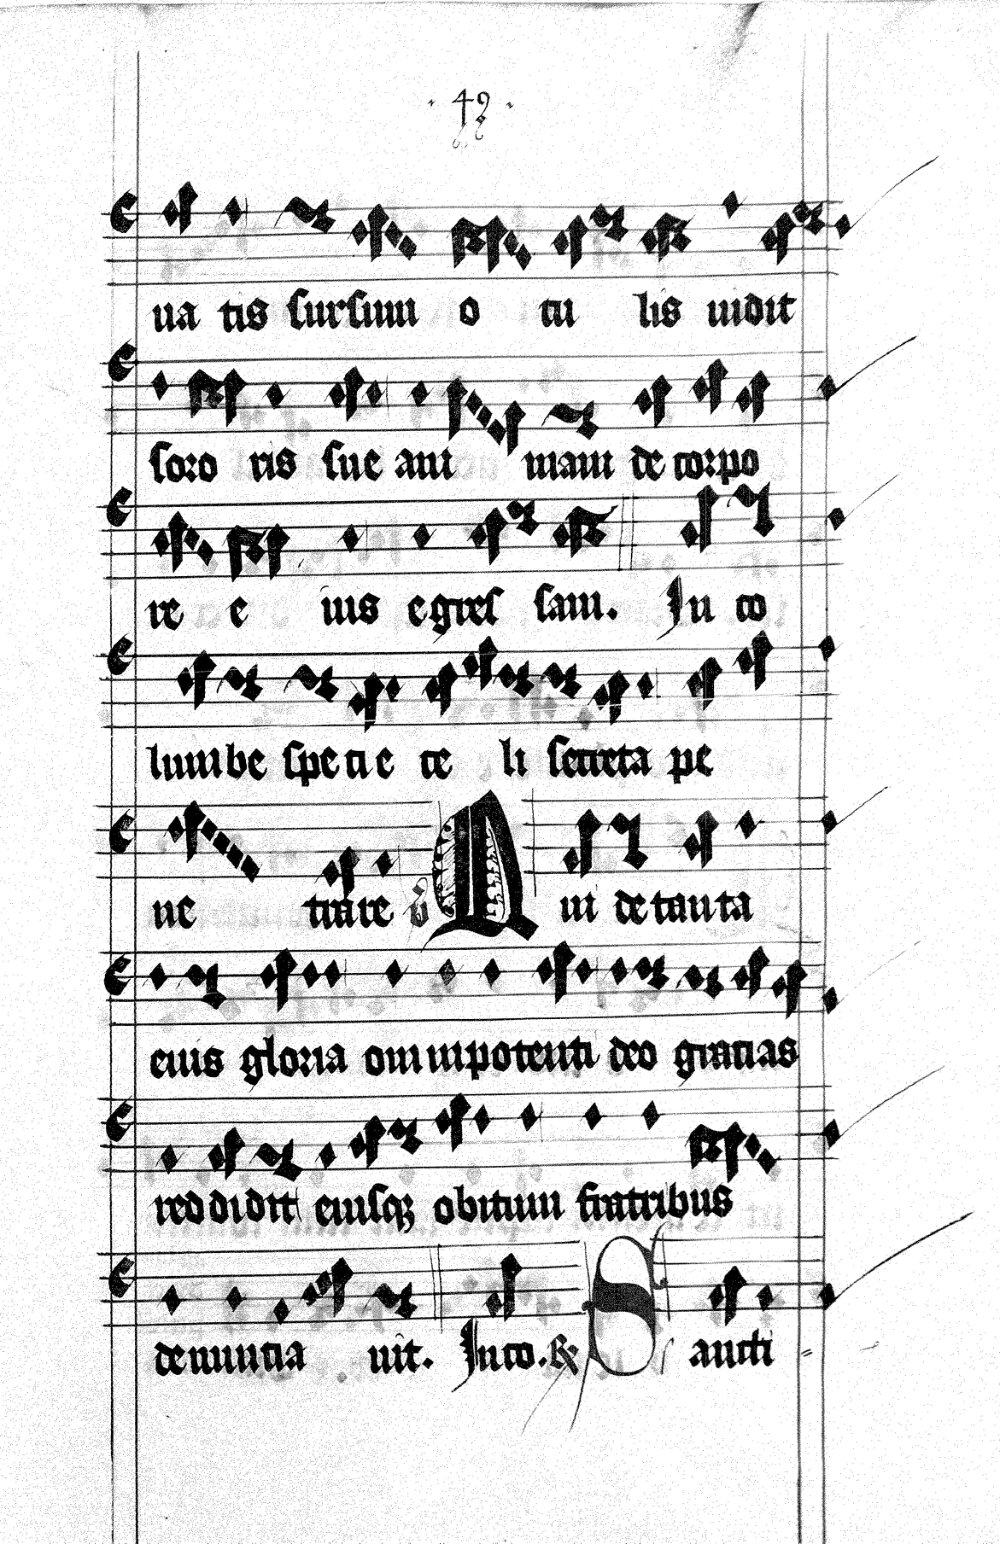 · 49 ·
ua tis sursum o cu lis uidit
soro ris sue ani mam de corpo
re e ius egres sam. In co
lumbe specie ce li secreta pe
ne trare v Qui de tanta
eius gloria omnipotenti deo gracias
reddidit eiusq; obitum fratribus
denuncia uit. In co. R Sancti